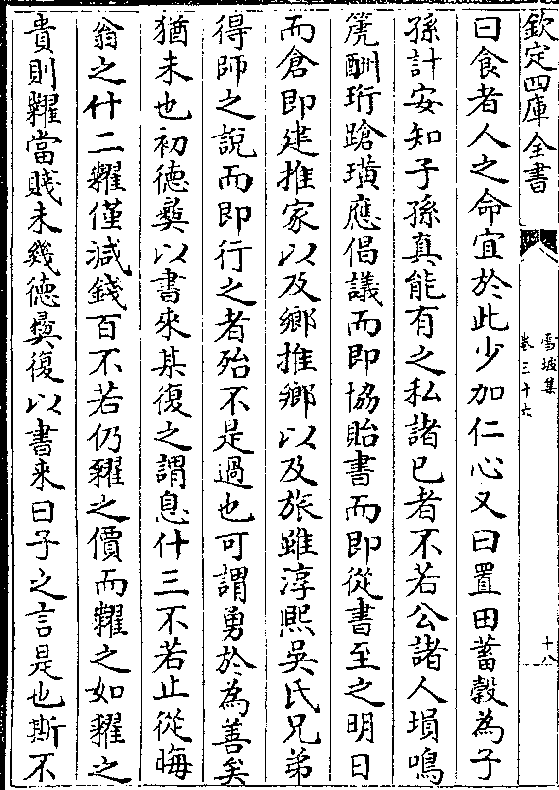 欽定四庫全書
雪坡集
卷三十六
十八
曰食者人之命宜於此少加仁心又曰置田蓄穀為子
孫計安知子孫真能有之私諸已者不若公諸人塤鳴
箎酬珩蹌璜應倡議而即協貽書而即從書至之明日
而倉即建推家以及鄉推鄉以及旅雖淳熙吳氏兄弟
得師之說而即行之者殆不是過也可謂勇於為善矣
猶未也初德彝以書來某復之謂息什三不若止從晦
翁之什二糶僅減錢百不若仍糴之價而糶之如糴之
貴則糶當賤未幾德彝復以書来曰子之言是也斯不